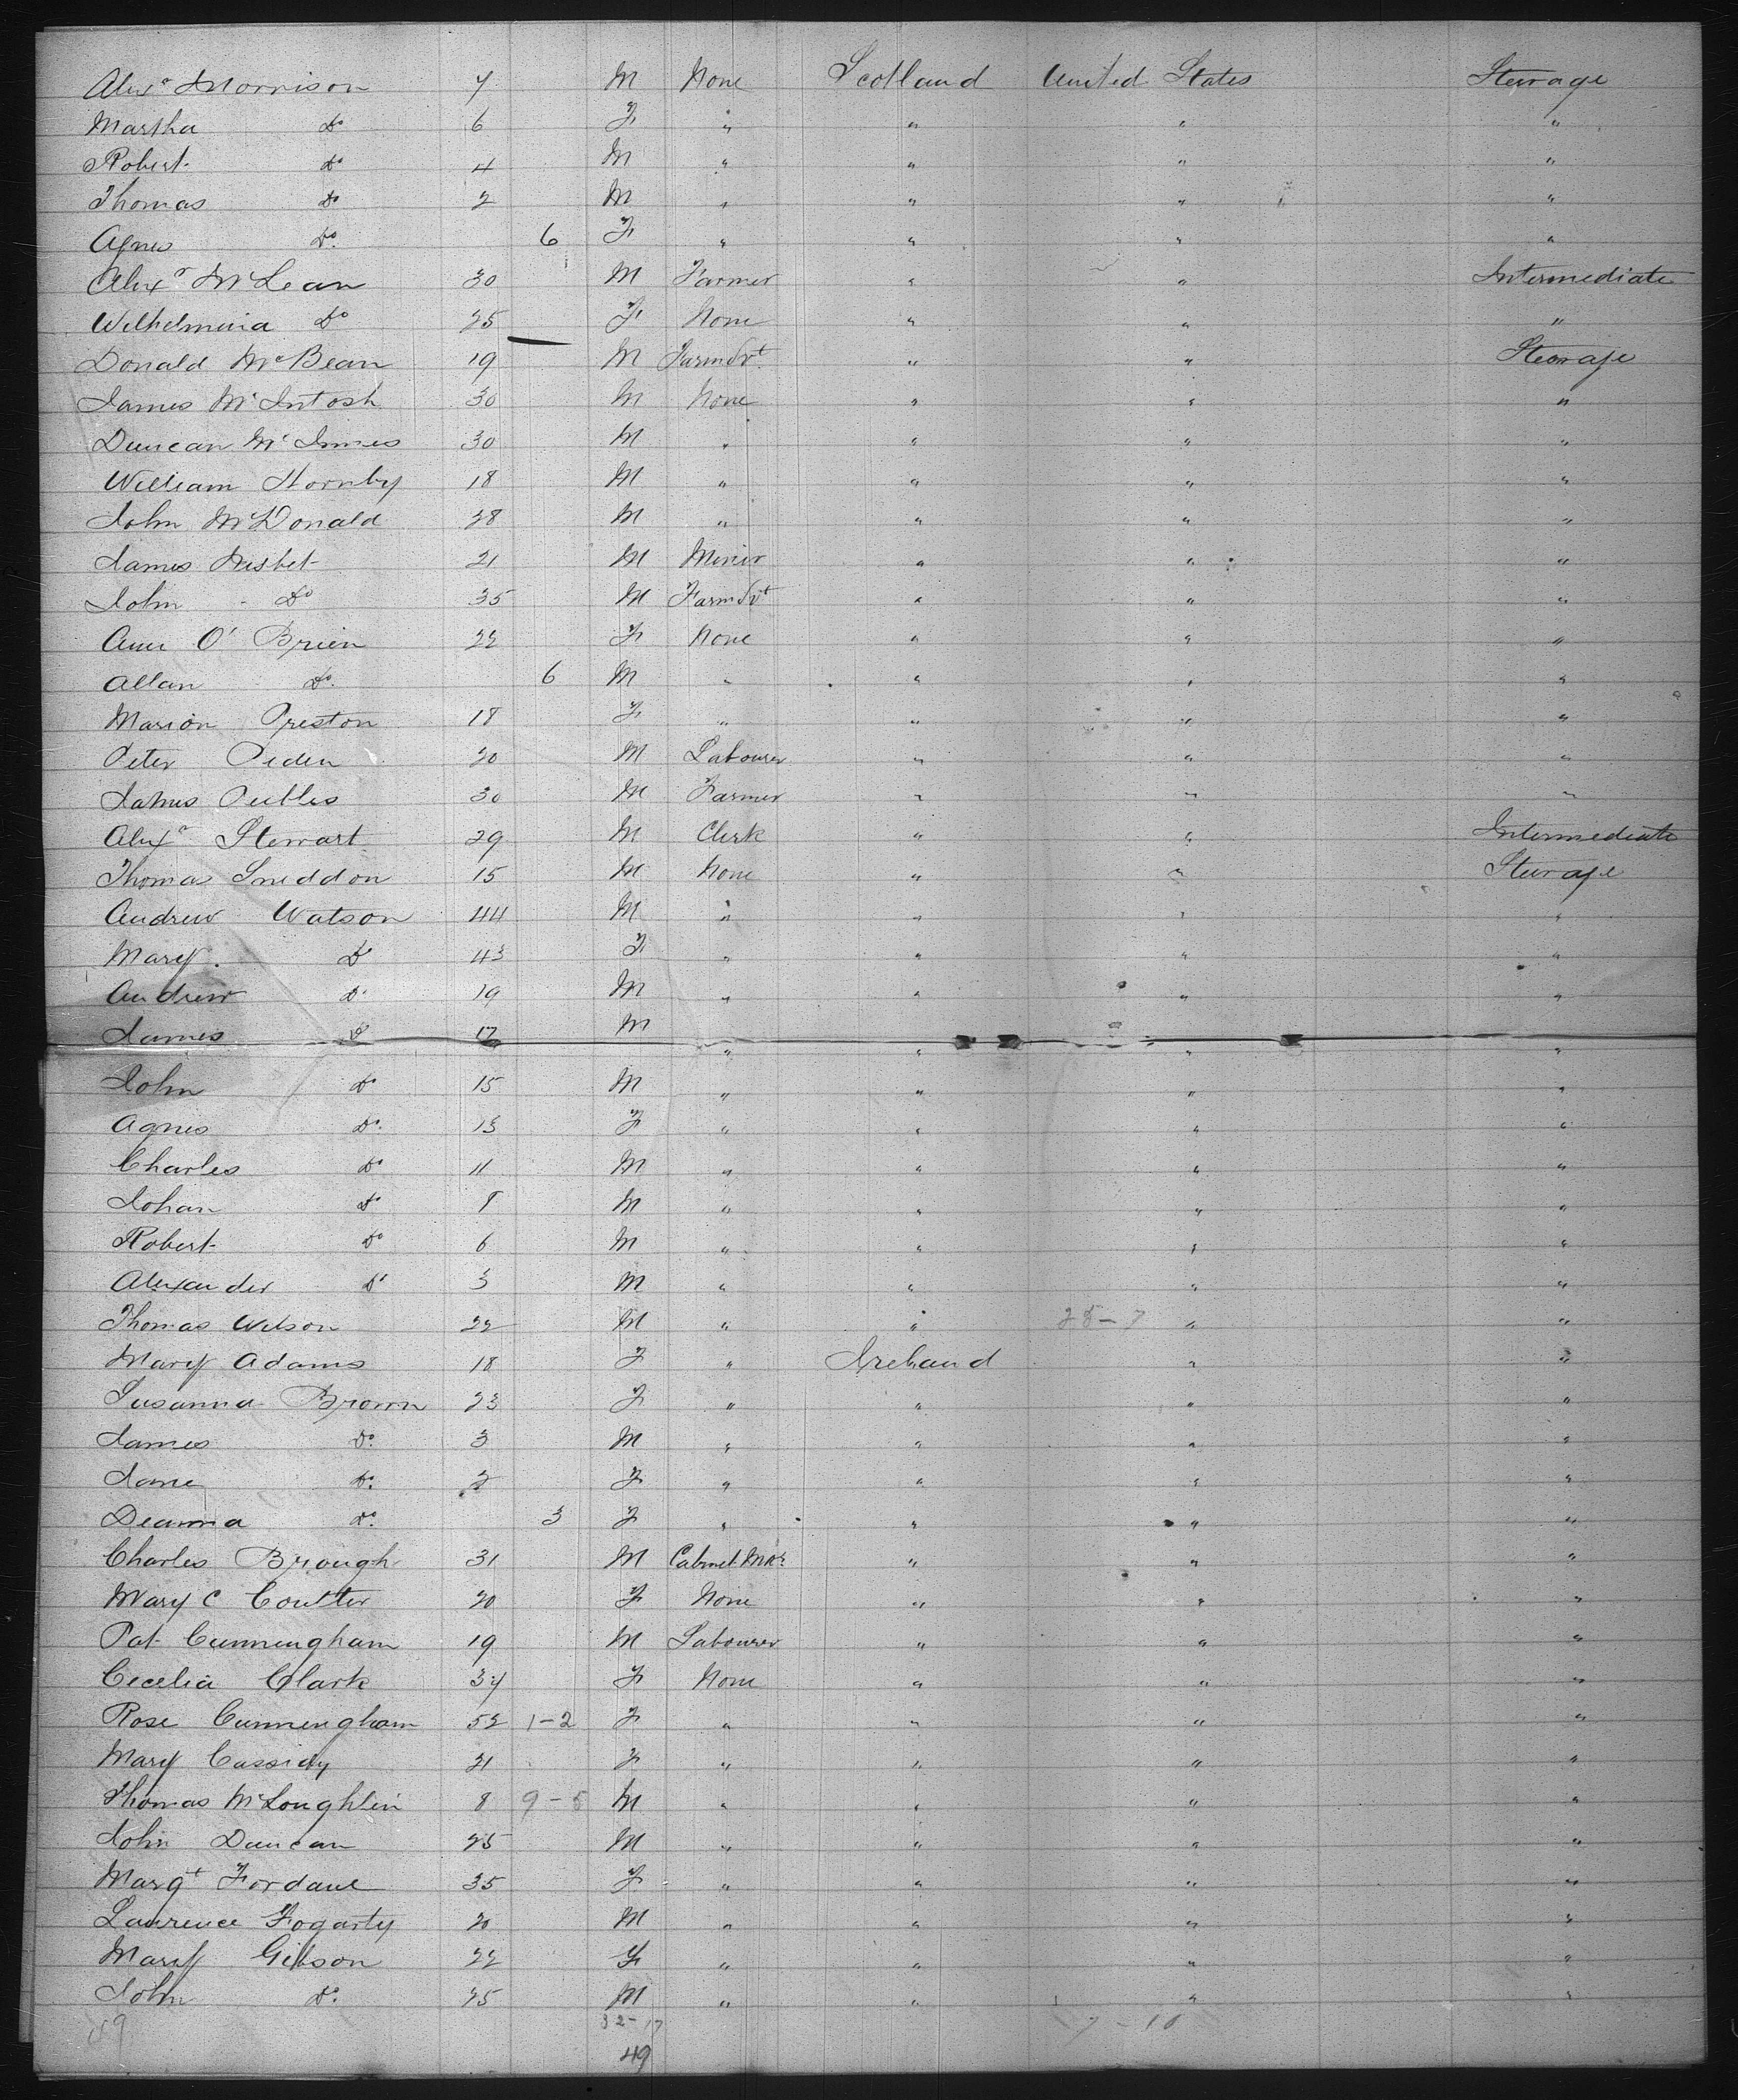 Alexr Morrison 7 M None Scotland United States Steerage
Martha Do 6 F " " " "
Robert Do 4 M " " " "
Thomas Do 2 M " " " "
Agnes Do. 6 F " " " "
Alexr McLean 30 M Farmer " " Intermediate
Wilhelmina Do 25 F None " " "
Donald McBean 19 M Farm Svt " " Steerage
James McIntosh 30 M None " " "
Duncan McInnes 30 M " " " "
William Hornby 18 M " " " "
John McDonald 28 M " " " "
James Nisbet 21 M Miner " " "
John Do 35 M Farm Svt " " "
Ann O'Brien 22 F None " " "
Allan Do. 6 M " " " "
Marion Preston 18 F " " " "
Peter Peden 20 M Labourer " " "
James Peebles 30 M Farmer " " "
Alexr Stewart 29 M Clerk " " Intermediate
Thomas Sneddon 15 M None " " Steerage
Andrew Watson 44 M " " " "
Mary Do 43 F " " " "
Andrew Do 19 M " " " "
James Do 17 M " " " "
John Do 15 M " " " "
Agnes Do. 13 F " " " "
Charles Do 11 M " " " "
Johan Do 8 M " " " "
Robert Do 6 M " " " "
Alexander Do 3 M " " " "
Thomas Wilson 22 M " " 28-7 " "
Mary Adams 18 F " Ireland " "
Susanna Brown 23 F " " " "
James Do. 3 M " " " "
Jane Do. 2 F " " " "
Deanna Do. 3 F " " " "
Charles Brough 31 M Cabinet Mkr " " "
Mary C Coulter 20 F None " " "
Pat Cunningham 19 M Labourer " " "
Cecelia Clark 34 F None " " "
Rose Cunningham 52 1-2 F " " " "
Mary Cassidy 21 F " " " "
Thomas McLoughlin 8 9-5 M " " " "
John Duncan 25 M " " " "
Margt Fordane 35 F " " " "
Laurence Fogarty 20 M " " " "
Mary Gibson 22 F " " " "
John Do. 25 M " " " "
49 32-17
49